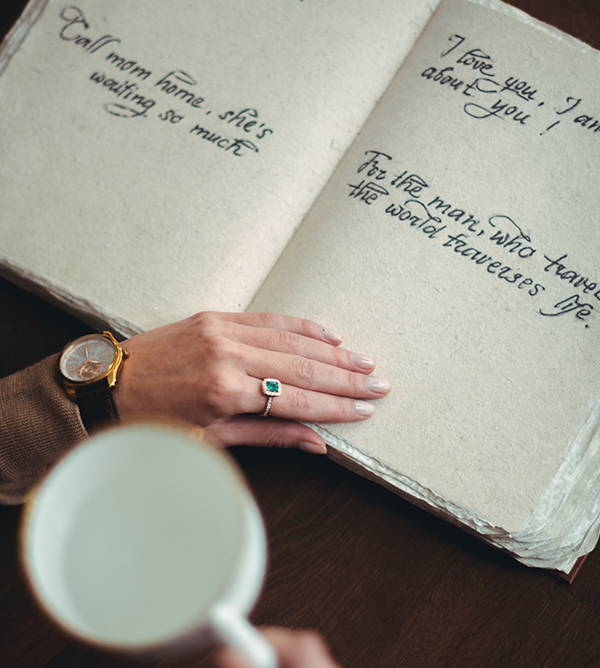 Call mom home, she's
waiting so much
I love you, I am
about you!
For the man, who
the world traverses life.